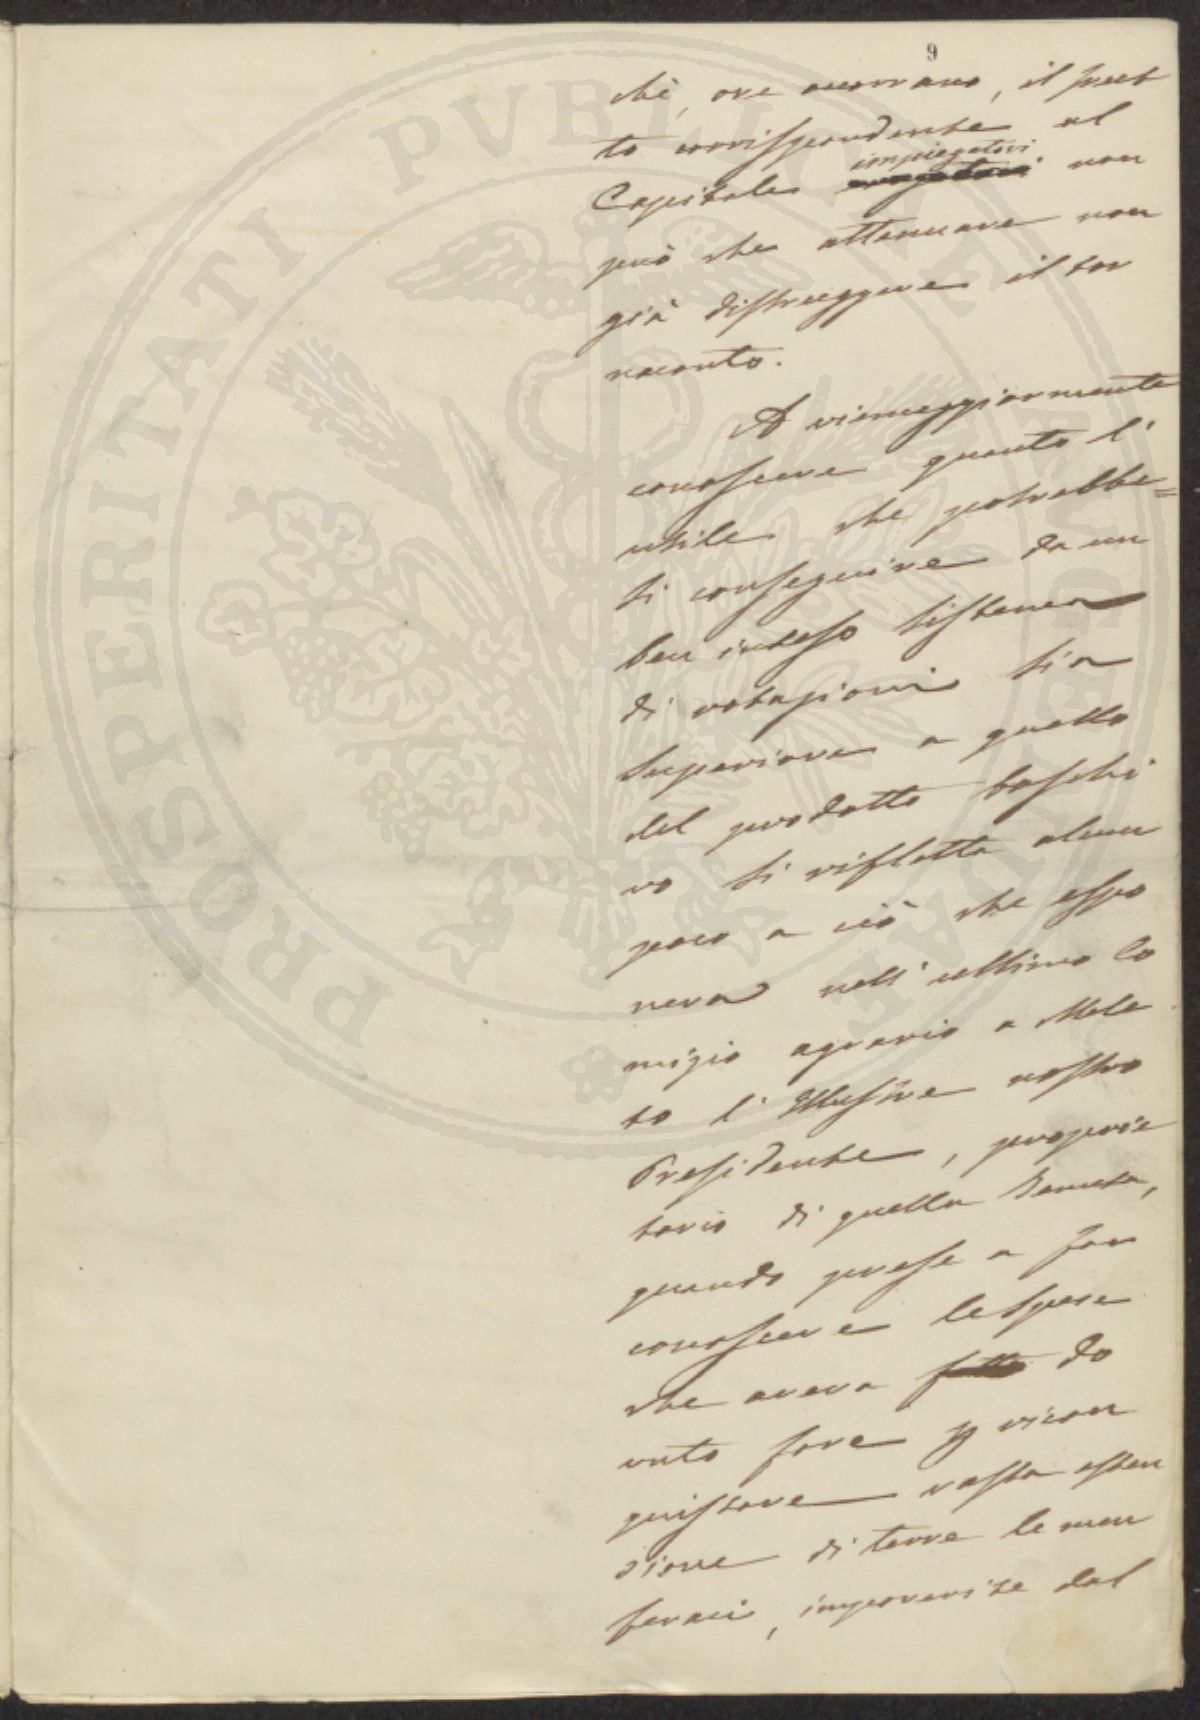 9
chè, ove occorrano, il frut
to corrispondente al
Capitale impiegatovi non
può che attenuare non
già distruggere il tor
naconto.
A viemeggiormente
conoscere quanto l'
utile che potrebbe=
si conseguire da un
ben inteso sistema
di rotazioni sia
superiore a quello
del prodotto boschi
vo si rifletta alcun
poco a ciò che espo
neva nell'ultimo Co
mizio agrario a Mele
to l'Illustre nostro
Presidente, proprie
tario di quella Tenuta,
quando prese a far
conoscere le spese
che aveva fatto do
vuto fare p ricon
quistare vasta esten
sione di terre le men
feraci, impoverite dal
PROSPERITATI PVBLICAE AVGENDAE